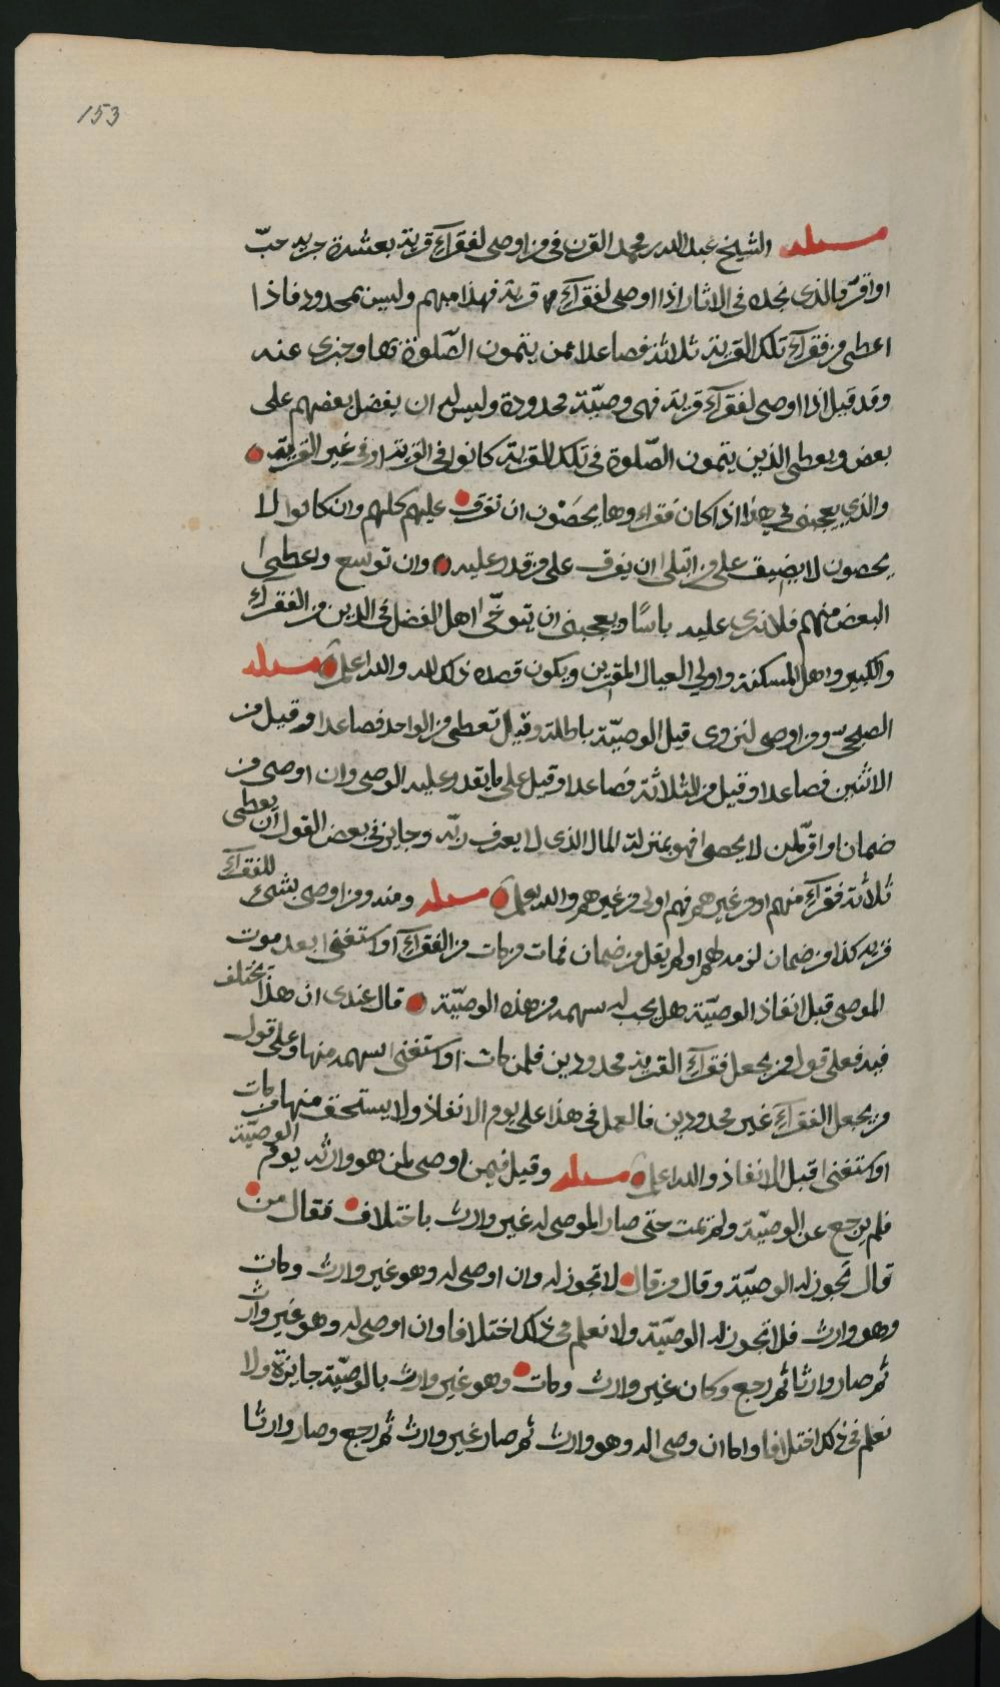 153
مسئلة الشيخ عبد الله بن محمد القرن في من اوصى لفقرآء قرية بعشرة جريد حبّ
او اقرّ بالذي نجده في الاثار اذا اوصى لفقرآء قرية فهذا مبهم وليس بمحدود فاذا
اعطى من فقرآء تلك القرية ثلاثة فصاعدا ممن يتمون الصّلوة بها وجزى عنه
وقد قيل اذا اوصى لفقرآء قرية فهي وصيّة محدودة وليس له ان يفضل بعضهم على
بعض ويعطى الذين يتمون الصّلوة في تلك القرية كانوا في القرية او في غير القرية
والذي يعجبني في هذا اذا كان فقراوها يحصون ان تفرق عليهم كلهم وان كانوا لا
يحصون لا يضيق على من ابتلى ان يفرق على من قدر عليه وان توسع واعطى
البعض منهم فلا نرى عليه باسًا ويعجبني ان يتوخّى اهل الفضل في الدين من الفقرآء
والكبير واهل المسكنة واولي العيال المقترين ويكون قصده ذلك لله والله اعلم مسئلة
الصبحيّ ومن اوصى لنزوى قيل الوصيّة باطلة وقيل تعطى من الواحد فصاعدا وقيل من
الاثنين فصاعدا وقيل من الثلاثة فصاعدا وقيل على ما يقدر عليه الوصى وان اوصى من
ضمان او اقرّ لمن لا يحصى فهو بمنزلة المال الذي لا يعرف ربّه وجايز في بعض القول ان يعطى
ثلاثة فقرآء منهم او من غيرهم فهم اولى من غيرهم والله اعلم مسئلة ومنه ومن اوصى بشئ للفقرآء
من بلد كذا من ضمان لزمه لهم او لم يقل من ضمان فمات من مات من الفقرآء او استغنى بعد موت
الموصى قبل انفاذ الوصيّة هل يجب له سهمه من هذه الوصيّة قال عندى ان هذا يختلف
فيه فعلى قول من يجعل فقرآء القرية محدودين فلمن مات او استغنى سهمه منها وعلى قول
من يجعل الفقرآء غير محدودين فالعمل في هذا على يوم الانفاذ ولا يستحق منها من مات
او استغنى قبل الانفاذ والله اعلم مسئلة وقيل فيمن اوصى لمن هو وارثه يوم الوصيّة
فلم يرجع عن الوصيّة ولم يمت حتى صار الموصى له غير وارث باختلاف فقال من
قال تجوز له الوصيّة وقال من قال لا تجوز له وان اوصى له وهو غير وارث ومات
وهو وارث فلا تجوز له الوصيّة ولا نعلم في ذلك اختلافا وان اوصى له وهو غير وارث
ثم صار وارثا ثم رجع وكان غير وارث ومات وهو غير وارث بالوصيّة جايزة ولا
نعلم في ذلك اختلافا واما ان وصى اله وهو وارث ثم صار غير وارث ثم رجع وصار وارثا